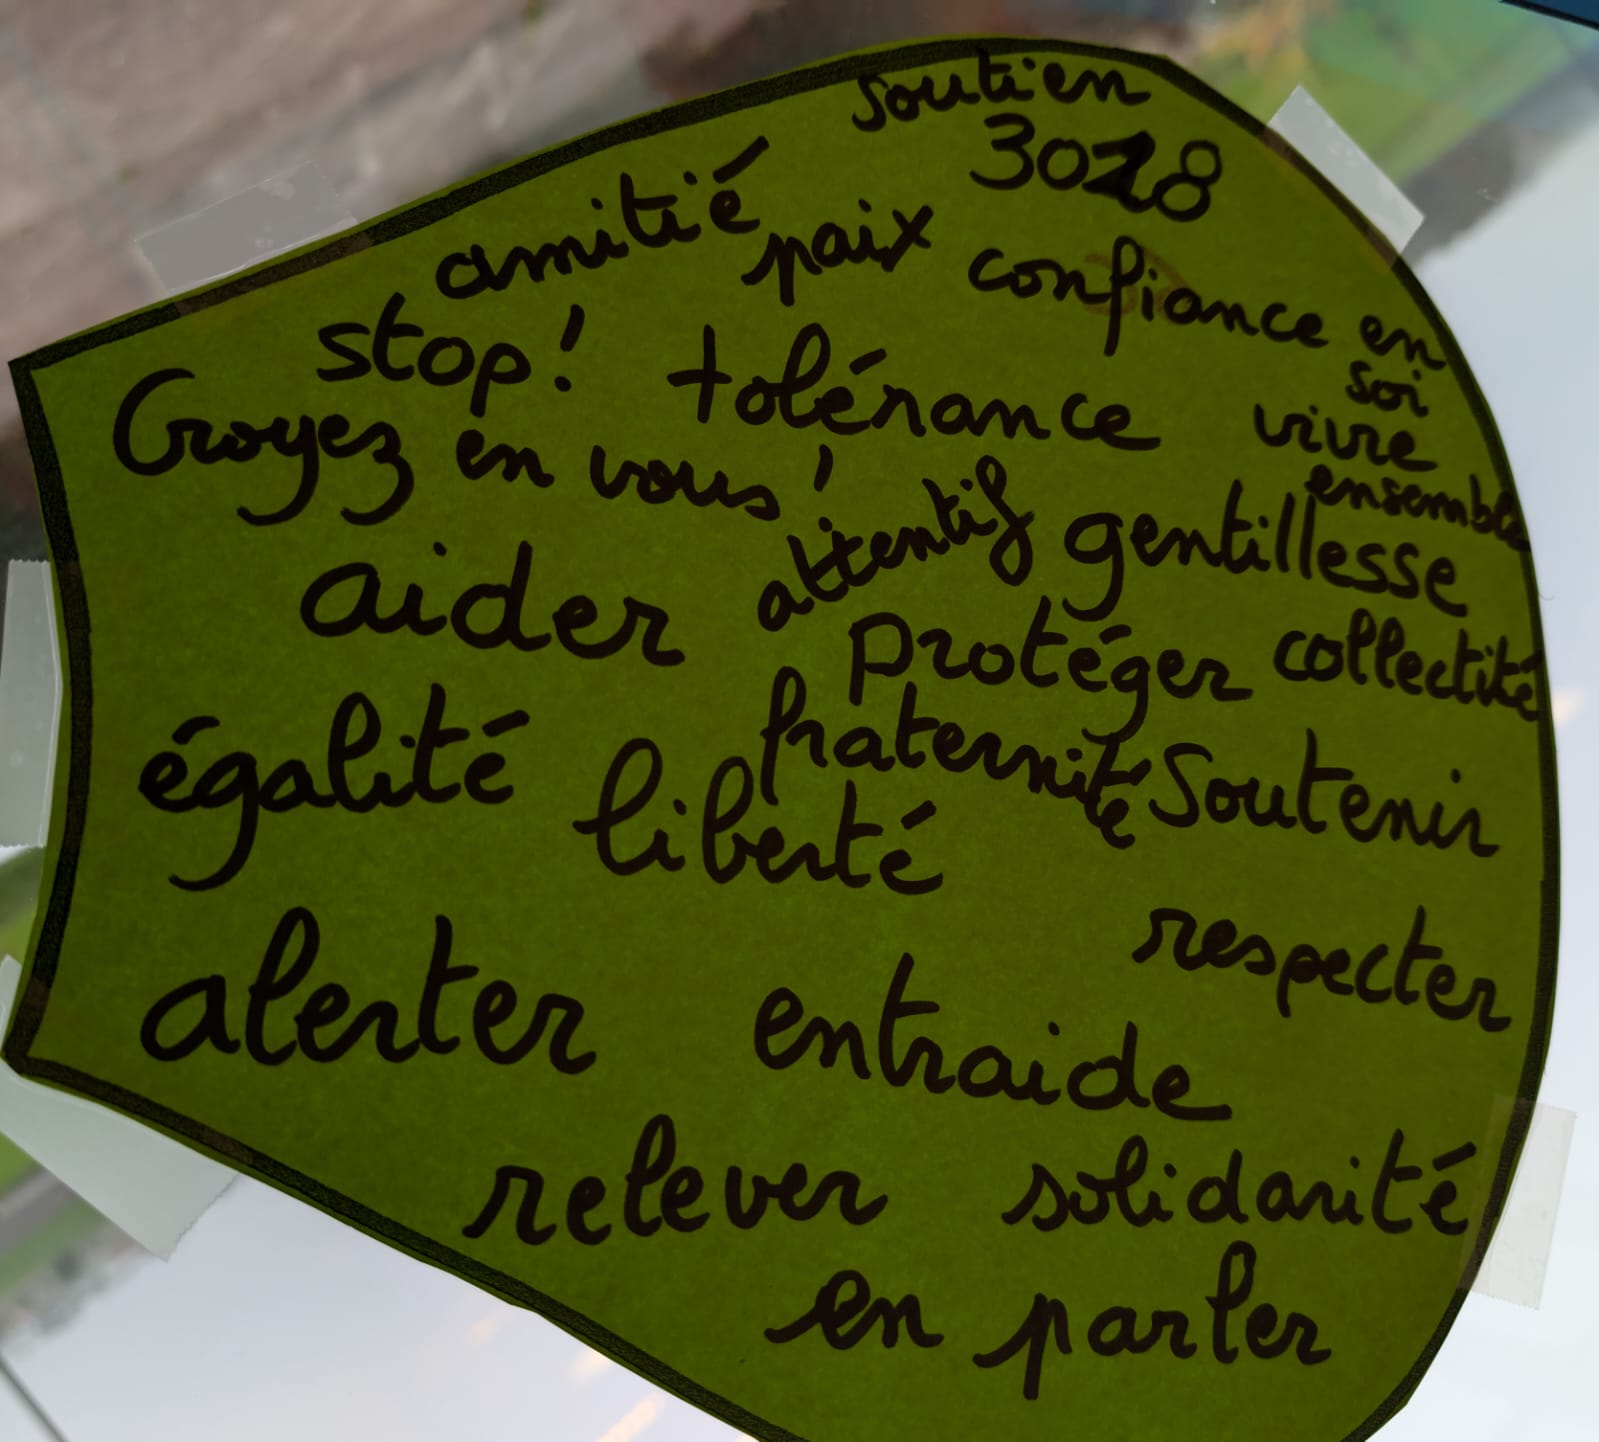 soutien
3018
amitié
paix
confiance en
soi
stop!
tolérance
vivre
ensemble
Croyez en vous!
attentif
gentillesse
aider
protéger
collectité
égalité
fraternité
soutenir
liberté
respecter
alerter
entraide
relever
solidarité
en parler